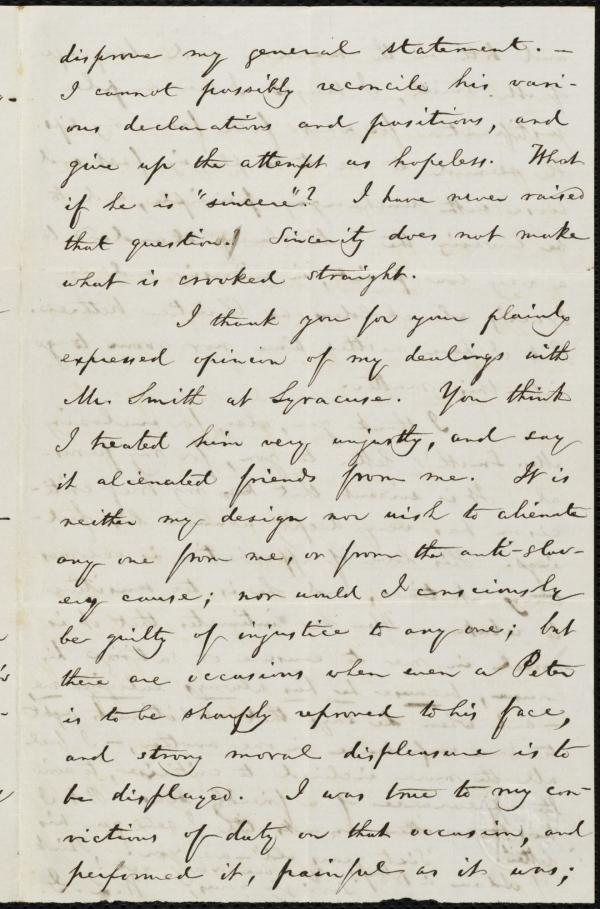 disprove my general statement. —
I cannot possibly reconcile his vari-
ous declarations and positions, and
give up the attempt as hopeless. What
if he is "sincere"? I have never raised
that question. Sincerity does not make
what is crooked straight.
I thank you for your plainly
expressed opinion of my dealings with
Mr. Smith at Syracuse. You think
I treated him very unjustly, and say
it alienated friends from me. It is
neither my design nor wish to alienate
any one from me, or from the anti-slav-
ery cause; nor would I consciously
be guilty of injustice to any one; but
there are occasions when even a Peter
is to be sharply reproved to his face,
and strong moral displeasure is to
be displayed. I was true to my con-
victions of duty on that occasion, and
performed it, painful as it was;